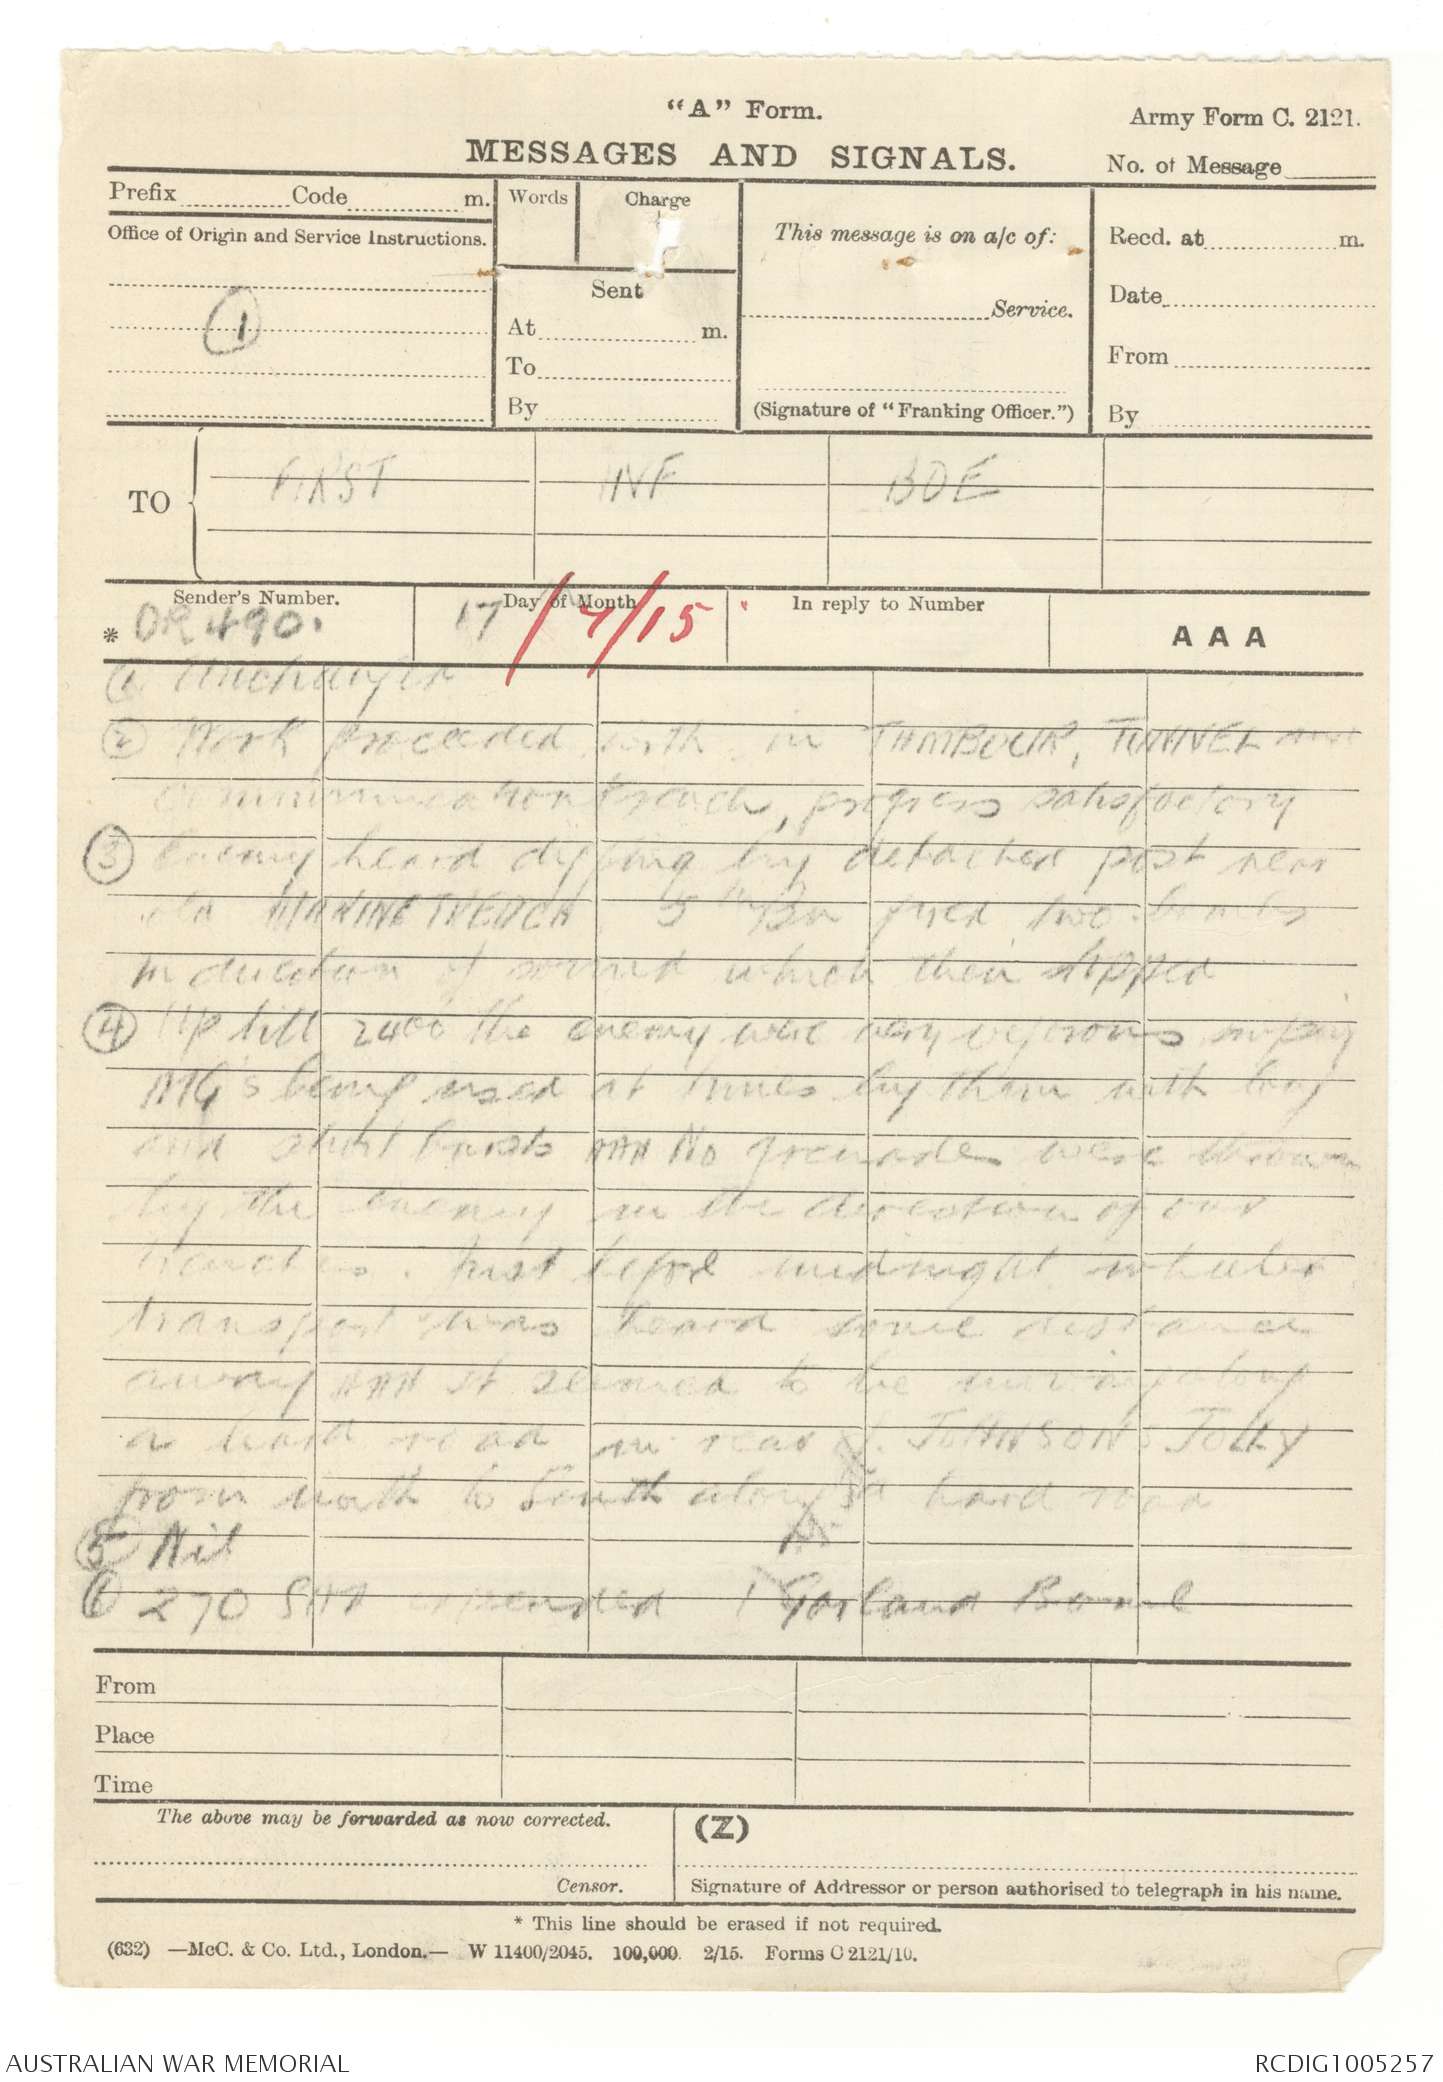 "A" Form.
Army Form C. 2121.
MESSAGES AND SIGNALS.
No. of Message
Prefix Code m.
Words
Charge
This message is on a/c of:
Recd. at m.
Office of Origin and Service Instructions.
Sent
Date
1
At m.
Service.
To
From
By
(Signature of "Franking Officer.")
By
TO
FIRST INF BDE
Sender's Number.
Day of Month
In reply to Number
* OR 490.
17/7/15
AAA
1 Unchanged
2 Work proceeded with in TAMBOUR, TUNNEL and
communication trench, progress satisfactory
3 Enemy heard digging by detached post near
old MARINE TRENCH 5th Bn fired two bombs
in direction of sound which then stopped
4 Up till 2400 the enemy were very vigorous
MG's being used at times by them with long
and short bursts AAA No grenades were thrown
by the enemy in the direction of our
trenches. Just before midnight wheeled
transport was heard some distance
away AAA It seemed to be moving along
a hard road in rear of JOHNSONS JOLLY
from North to South along a hard road
5 Nil
6 270 SAA expended 1 Garland Bomb
From
Place
Time
The above may be forwarded as now corrected.
(Z)
Censor.
Signature of Addressor or person authorised to telegraph in his name.
* This line should be erased if not required.
(632) —McC. & Co. Ltd., London.— W 11400/2045. 100,000. 2/15. Forms C 2121/10.
AUSTRALIAN WAR MEMORIAL
RCDIG1005257